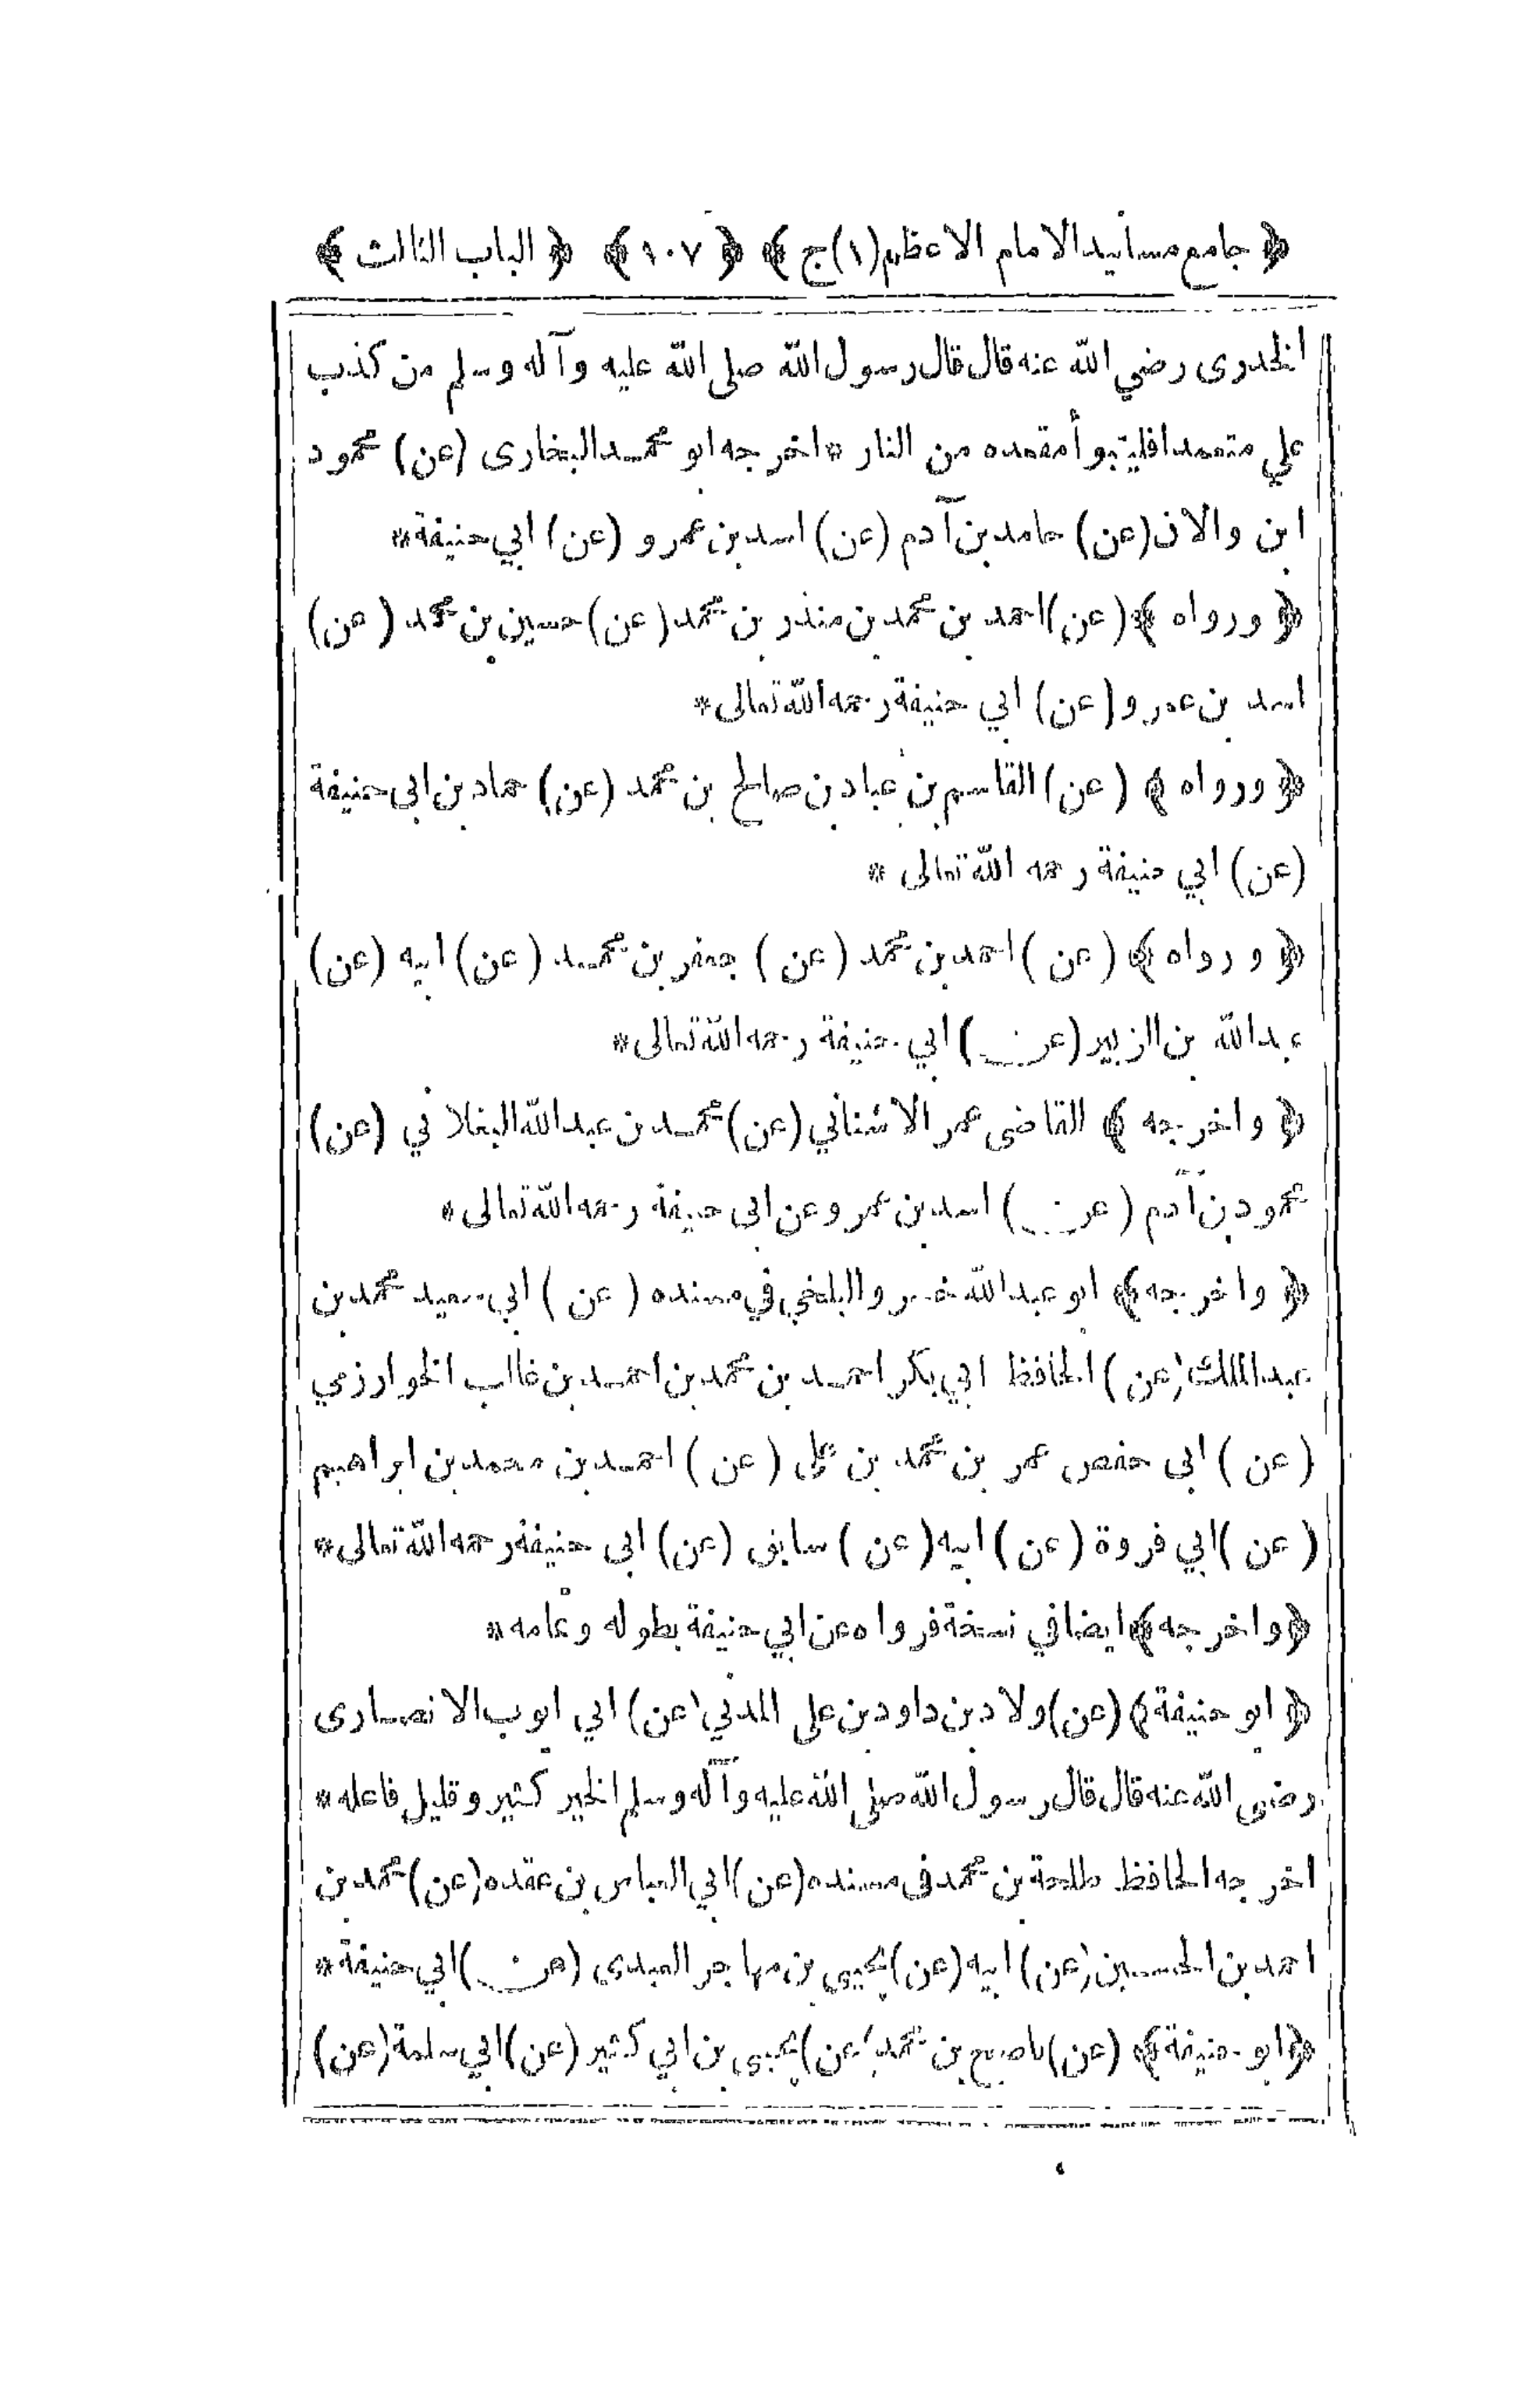 ﴿ جامع مسانيد الامام الاعظم (١) ج ﴾ ﴿ ١٠٧ ﴾ ﴿ الباب الثالث ﴾
الخدرى رضي الله عنه قال قال رسول الله صلى الله عليه وآله وسلم من كذب
علي متعمدا فليتبوأ مقعده من النار * اخرجه ابو محمد البخارى (عن) محمود
ابن والان (عن) حامد بن آدم (عن) اسد بن عمرو (عن) ابي حنيفة *
﴿ ورواه ﴾ (عن) احمد بن محمد بن منذر بن محمد (عن) حسين بن محمد (عن)
اسد بن عمرو (عن) ابي حنيفة رحمه الله تعالى *
﴿ ورواه ﴾ (عن) القاسم بن عباد بن صالح بن محمد (عن) حماد بن ابى حنيفة
(عن) ابي حنيفة رحمه الله تعالى *
﴿ ورواه ﴾ (عن) احمد بن محمد (عن) جعفر بن محمد (عن) ابيه (عن)
عبد الله بن الزبير (عن) ابي حنيفة رحمه الله تعالى *
﴿ واخرجه ﴾ القاضى عمر الاشناني (عن) محمد بن عبد الله البغلاني (عن)
محمود بن آدم (عن) اسد بن عمرو عن ابى حنيفة رحمه الله تعالى *
﴿ واخرجه ﴾ ابو عبد الله خسرو البلخي في مسنده (عن) ابي سعيد محمد بن
عبد الملك (عن) الحافظ ابي بكر احمد بن محمد بن احمد بن غالب الخوارزمي
(عن) ابى حفص عمر بن محمد بن على (عن) احمد بن محمد بن ابراهيم
(عن) ابي فروة (عن) ابيه (عن) سابق (عن) ابى حنيفة رحمه الله تعالى *
﴿ واخرجه ﴾ ايضا في نسخة فرواه عن ابي حنيفة بطوله وتمامه *
﴿ ابو حنيفة ﴾ (عن) ولاد بن داود بن على المدني (عن) ابي ايوب الانصارى
رضى الله عنه قال قال رسول الله صلى الله عليه وآله وسلم الخير كثير وقليل فاعله *
اخرجه الحافظ طلحة بن محمد فى مسنده (عن) ابي العباس بن عقده (عن) محمد بن
احمد بن الحسين (عن) ابيه (عن) يحيى بن مهاجر العبدى (عن) ابي حنيفة *
﴿ ابو حنيفة ﴾ (عن) ناصح بن محمد (عن) يحيى بن ابي كثير (عن) ابي سلمة (عن)